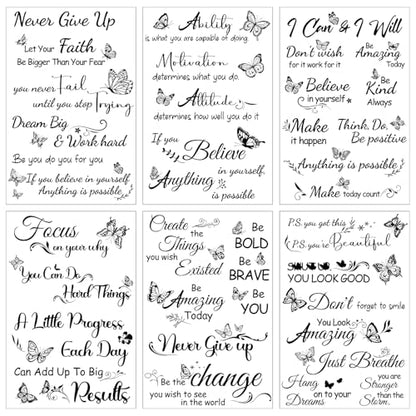 Never Give Up
Let Your Faith
Be Bigger Than Your Fear
you never Fail
until you stop Trying
Dream Big
& Work hard
Be you do you for you
If you believe in yourself
Anything is possible
Ability
is what you are capable of doing
Motivation
determines what you do
Attitude
determines how well you do it
If you
Believe
in yourself
Anything is possible
I Can & I Will
Don't wish
for it work for it
Be
Amazing
Today
Believe
in yourself
Be
Kind
Always
Make
it happen
Think. Do.
Be positive
Anything is possible
Make today count
Focus
on your why
You Can Do
Hard Things
A Little Progress
Each Day
Can Add Up To Big
Results
Create
the
Things
you wish
Existed
Be
BOLD
Be
BRAVE
Be
Amazing
Today
Be
YOU
Never Give up
Be the change
you wish to see
in the world
P.S. you got this
P.S. you're Beautiful
YOU LOOK GOOD
Don't forget to smile
You Look
Amazing
Just Breathe
Hang
on to your
Dreams
you are
Stronger
than the
Storm.